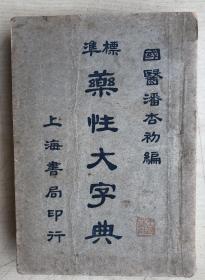 國醫潘杏初編
標準
藥性大字典
上海書局印行